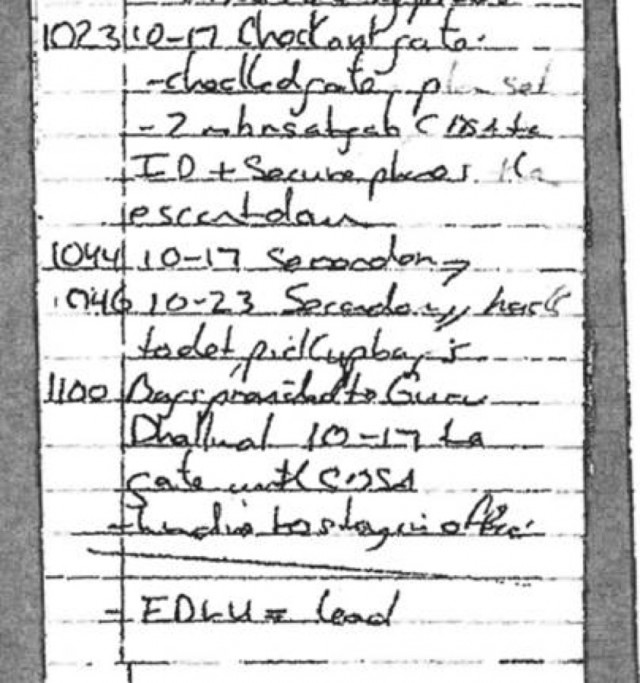 1023 10-17 Check out gate.
- checked gate, plan set
- 2 mbrs at gate CBSA to
ID + secure phones. to
escort down
1044 10-17 Secondary
1046 10-23 Secondary, back
to det, pick up bags
1100 Bags provided to Gurv
Dhaliwal 10-17 to
gate with CBSA
- to stay in office.
- EDLU = lead